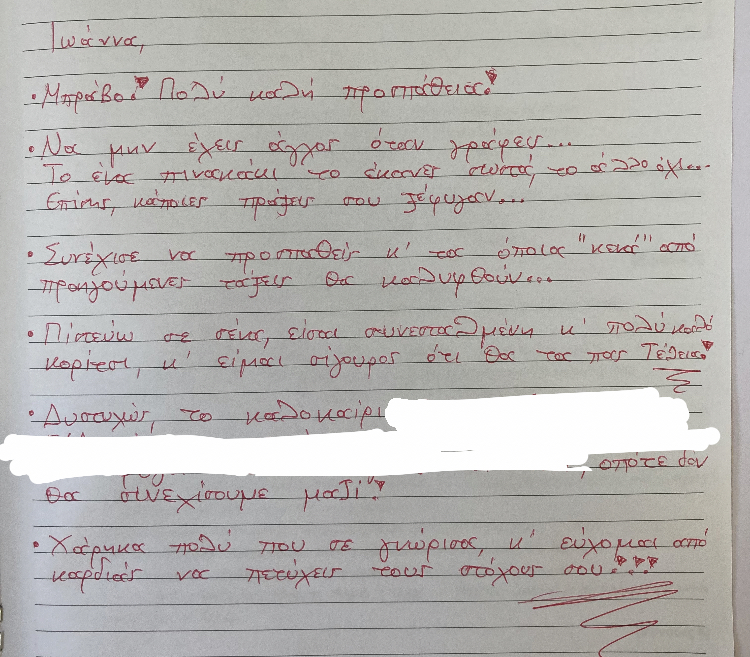 Ιωάννα,
• Μπράβο! Πολύ καλή προσπάθεια!
• Να μην έχεις άγχος όταν γράφεις...
Το ένα πινακάκι το έκανες σωστά, το άλλο όχι...
Επίσης, κάποιες πράξεις σου ξέφυγαν...
• Συνέχισε να προσπαθείς κ' τα όποια "κενά" από
προηγούμενες τάξεις θα καλυφθούν...
• Πιστεύω σε σένα, είσαι συνεσταλμένη κ' πολύ καλό
κορίτσι, κ' είμαι σίγουρος ότι θα τα πας Τέλεια!
• Δυστυχώς, το καλοκαίρι
, οπότε δεν
θα συνεχίσουμε μαζί!
• Χάρηκα πολύ που σε γνώρισα, κ' εύχομαι από
καρδιάς να πετύχεις τους στόχους σου!!!